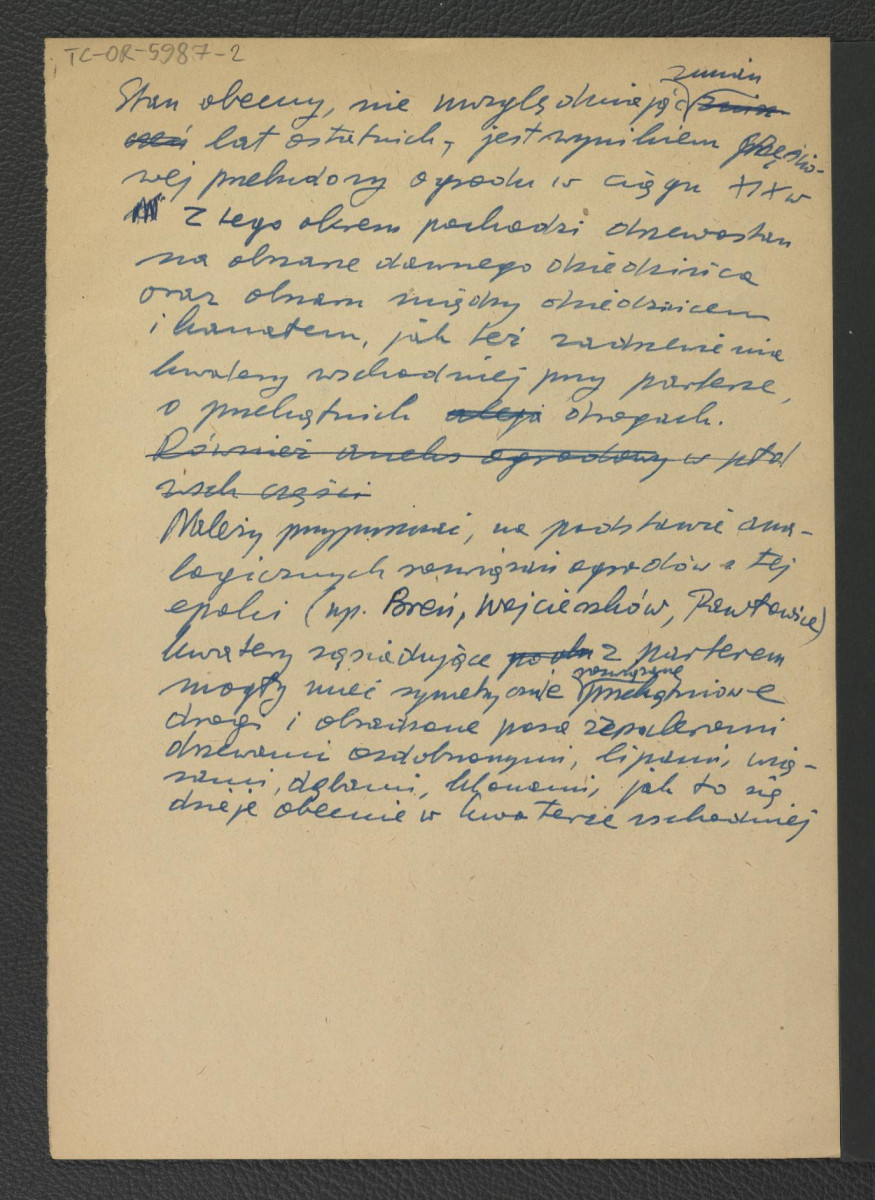 TC-OR-5987-2
zmian
Stan obecny, nie uwzględniając znisz-
czeń lat ostatnich, jest wynikiem częścio-
wej przebudowy ogrodu w ciągu XIX w
Z tego okresu pochodzi drzewostan
na obszarze dawnego dziedzińca
oraz obszaru między dziedzińcem
i kanałem, jak też zadrzewienie
kwatery wschodniej przy parterze,
o przekątnich aleja drogach.
Również aneks ogrodowy w płd
wsch części
Należy przypuszczać, na podstawie ana-
logicznych rozwiązań ogrodów z tej
epoki (np. Breń, Wojcieszków, Pawłowice)
kwatery sąsiadujące z parterem
rozwiązane
mogły mieć symetrycznie przekątniowe
drogi i obsadzone poza szpalerami
drzewami ozdobnymi, lipami, wią-
zami, dębami, klonami, jak to się
dzieje obecnie w kwaterze wschodniej